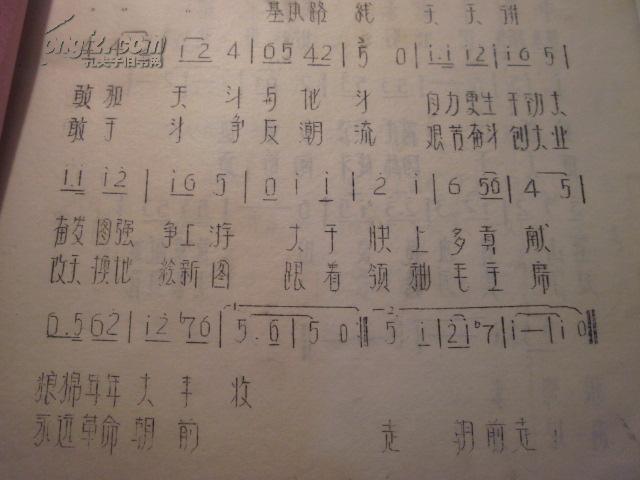 基本路线 天天讲
孔夫子旧书网
1 2 4 | 6 5 4 2 | 5 0 | i.i i2 | i6 5 |
敢和天斗与地斗 自力更生干劲大
敢于斗争反潮流 艰苦奋斗创大业
i.i i2 | i6 5 | 0 i i | 2 i | 6 56 | 4 5 |
奋发图强争上游 大干快上多贡献
改天换地绘新图 跟着领袖毛主席
6.5 62 | i2 b76 | 5.6 | 5 0 | 5 i | 2i b7 | i — | i 0
粮棉年年大丰收
永远革命朝前 走 朝前走